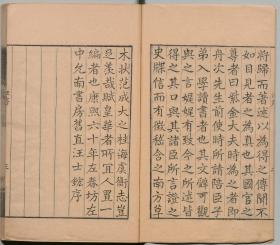 將歸而著述以為得之傳聞不
如目見者之為真也其國官之
尊者曰紫金大夫時為之者即
舟次先生前使時所請陪臣子
弟入學讀書者也其文辭可觀
與之言娓娓有致令之所述皆
得之其口與其諸臣所言證之
史牒信而有徵嵇含之南方草
木狀范成大之桂海虞衡志豈
足羨哉賦皇華者所宜人置一
編者也康熙六十年左春坊左
中允南書房舊直汪士鋐序